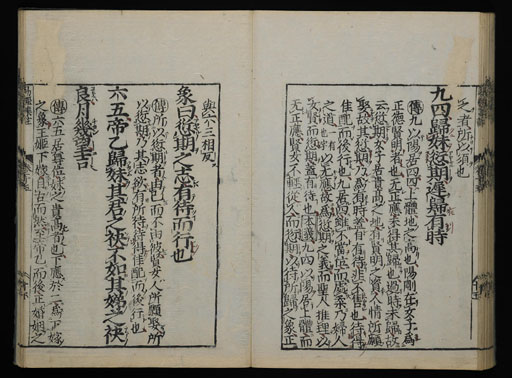 之者所以須也
九四歸妹愆期遲歸有時
傳九以陽居四四上體地之高也陽剛在女子爲
正德賢明者也无正應未得其歸也過時未歸故
云愆期女子居貴高之地有賢明之資人情所願
娶故其愆期乃爲有時蓋自有待非不售也待得
佳配而後行也九居四雖不當位而處柔乃婦人
之道以无應故爲愆期之義而聖人推理以
女賢而愆期蓋有待也本義九四以陽居上體而
无正應賢女不輕從人而愆期以待所歸之象正
與六三相反
象曰愆期之志有待而行也
傳所以愆期者由己而不由彼賢女人所願娶所
以愆期乃其志欲有所待待得佳配而後行也
六五帝乙歸妹其君之袂不如其娣之袂
良月幾望吉
傳六五居尊位妹之貴高者也下應於二爲下嫁
之象王姬下嫁自古而然至帝乙而後正婚姻之